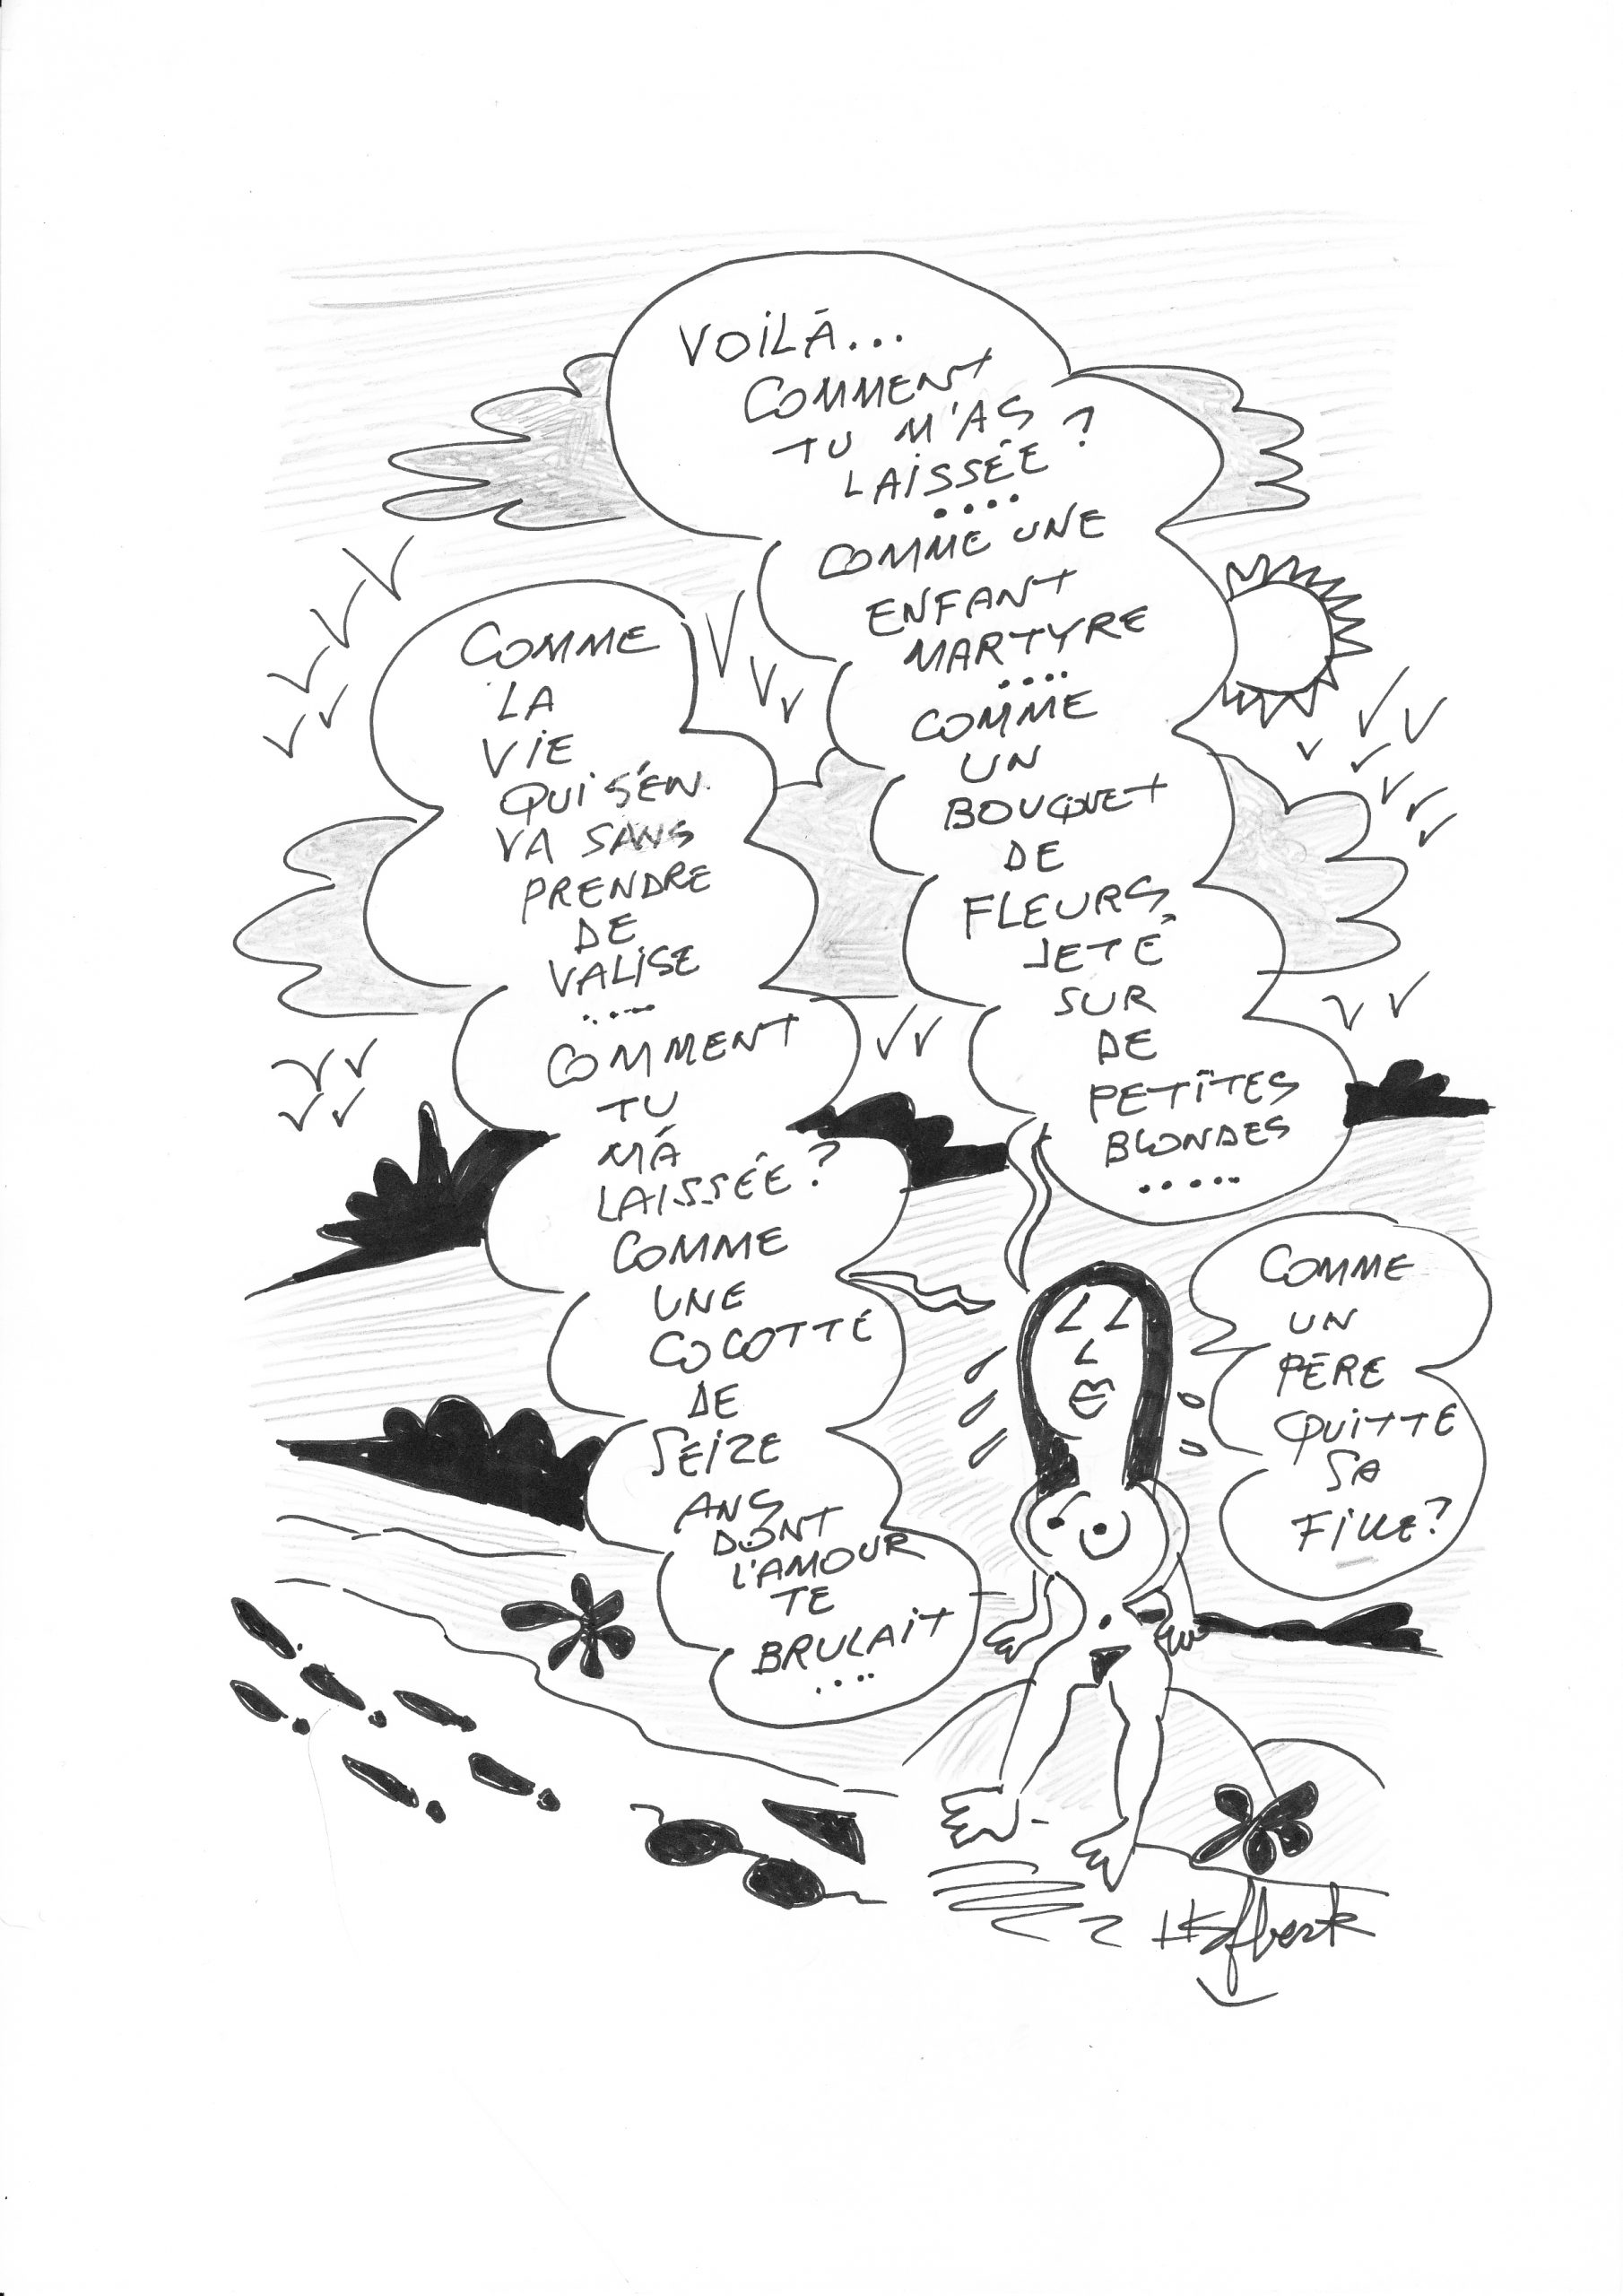 VOILÀ...
COMMENT
TU M'AS
LAISSÉE ?
....
COMME UNE
ENFANT
MARTYRE
....
COMME
UN
BOUQUET
DE
FLEURS
JETÉ
SUR
DE
PETITES
BLONDES
.....
COMME
LA
VIE
QUI S'EN
VA SANS
PRENDRE
DE
VALISE
....
COMMENT
TU
M'A
LAISSÉE ?
COMME
UNE
COCOTTE
DE
SEIZE
ANS
DONT
L'AMOUR
TE
BRULAIT
....
COMME
UN
PÈRE
QUITTE
SA
FILLE ?